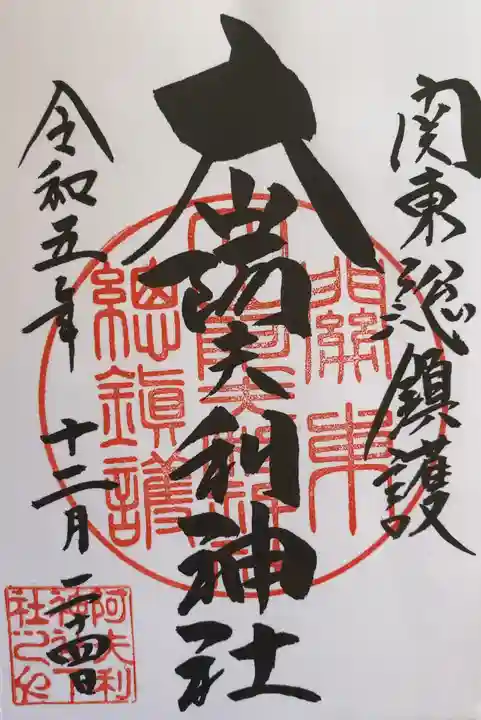 関東総鎮護
大山阿夫利神社
令和五年 十二月 二十四日
關東
總鎮護
阿夫利
神社下
社之印